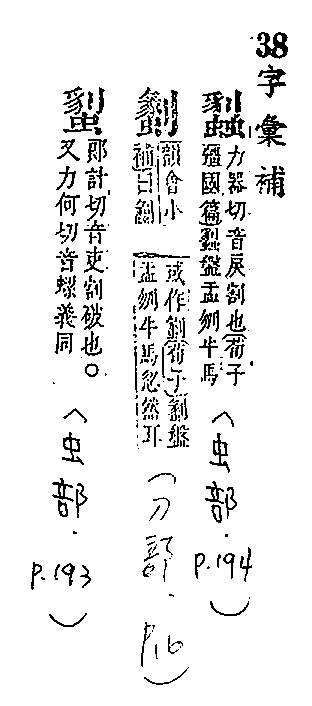 38 字彙補
力器切音戾割也荀子
彊國篇盤盂刎牛馬
(虫部.p.194)
韻會小
補曰劙
或作劙荀子劙盤
盂刎牛馬忽然耳
(刀部.p.16)
郎計切音吏割破也○
又力何切音螺義同
(虫部.p.193)